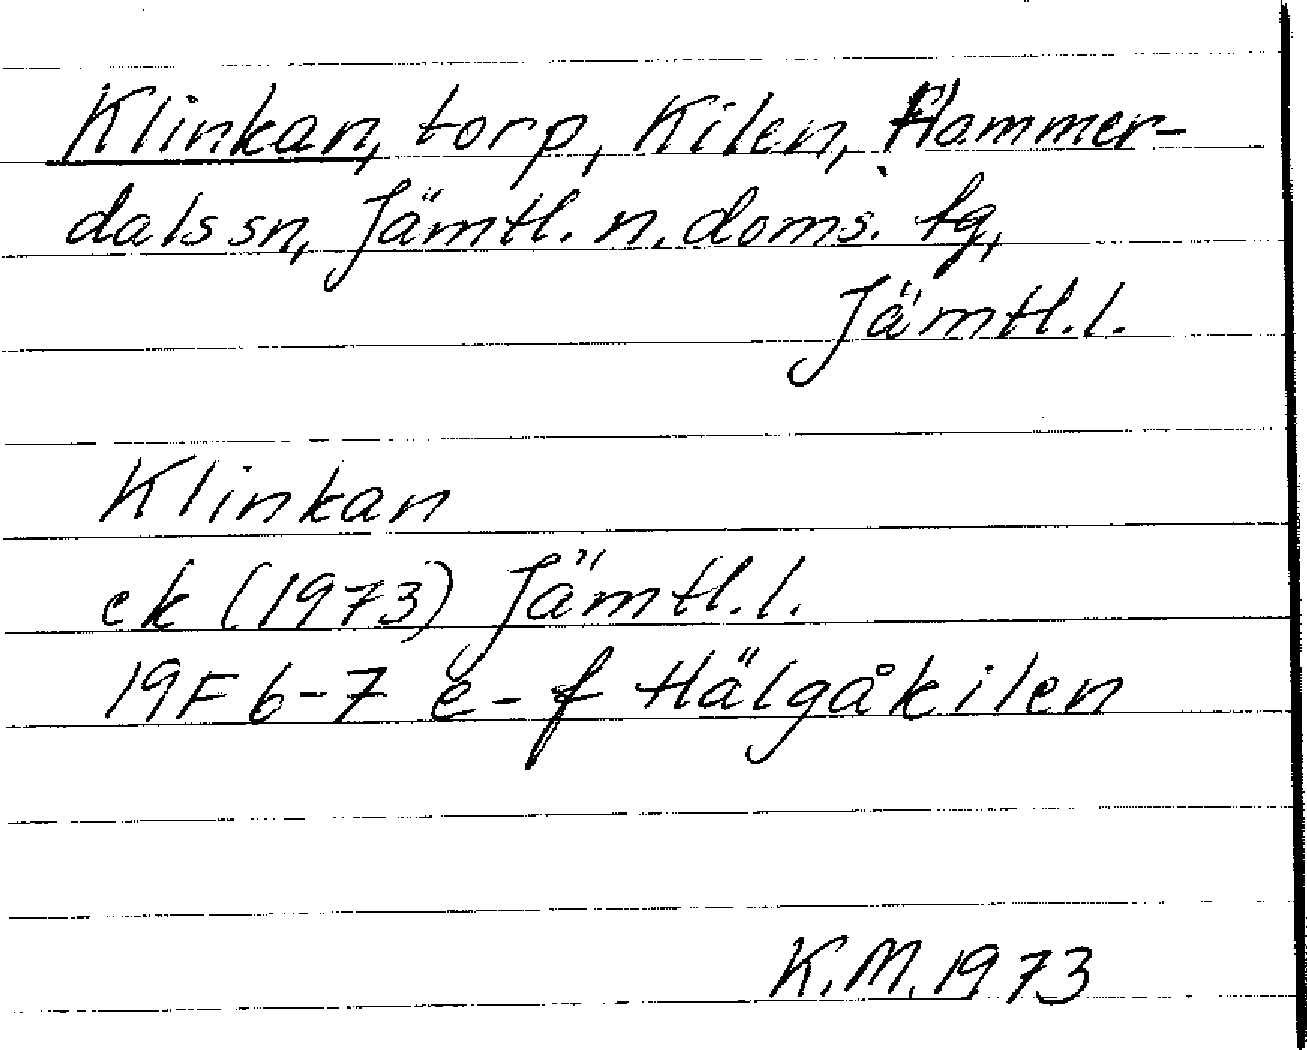 Klinkan, torp, Kilen, Hammer-
dals sn, Jämtl. n. doms. tg,
Jämtl. l.
Klinkan
ek (1973) Jämtl. l.
19F 6-7 e-f Hälgåkilen
K.M. 1973